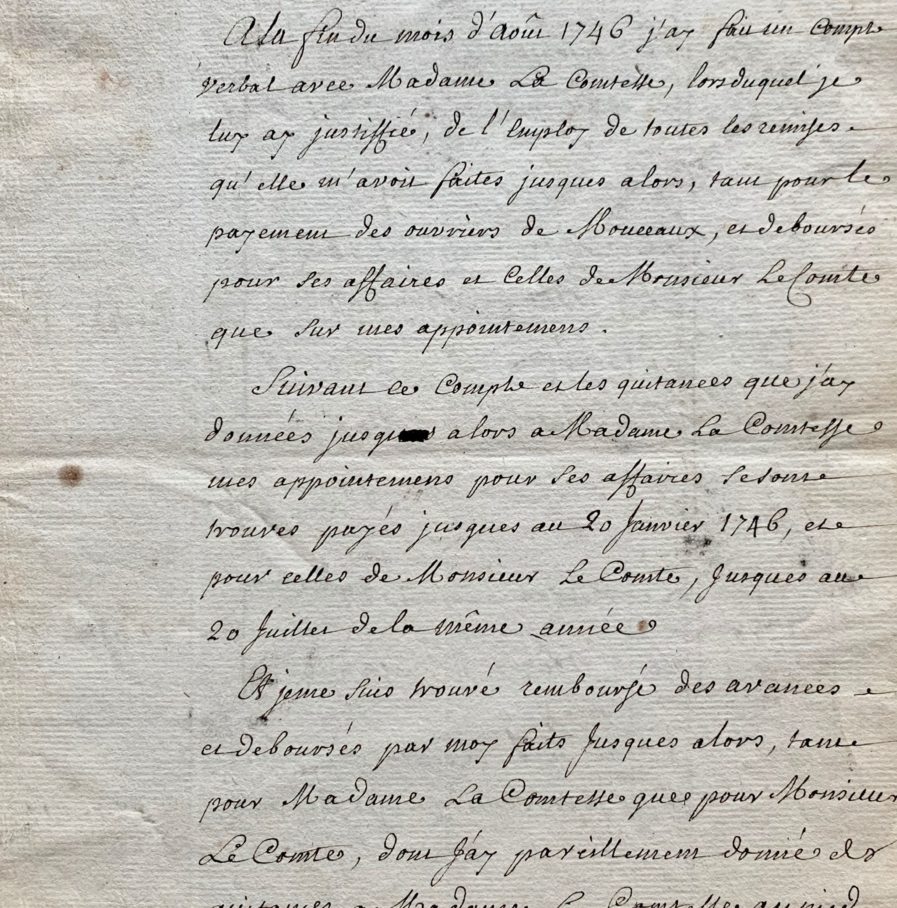 A la fin du mois d'Août 1746 j'ay fait un Compte
verbal avec Madame La Comtesse, lors duquel je
luy ay justiffié, de l'Employ de toutes les remises
qu'elle m'avoit faites jusques alors, tant pour le
payement des ouvriers de Mouceaux, et deboursés
pour ses affaires et Celles de Monsieur Le Comte
que sur mes appointemens.
Suivant ce Compte et les quitances que j'ay
données jusques alors a Madame La Comtesse
mes appointemens pour ses affaires se sont
trouvés payés jusques au 20 Janvier 1746, et
pour celles de Monsieur Le Comte, Jusques au
20 Juillet de la même année
Et je me suis trouvé remboursé des avances
et deboursés par moy faits Jusques alors, tant
pour Madame La Comtesse que pour Monsieur
Le Comte, dont J'ay pareillement donné des
quitances a Madame La Comtesse au pied